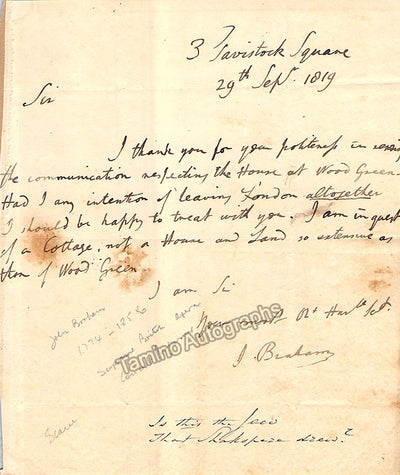 3 Tavistock Square
29th Sepr. 1819
Sir
I thank you for your politeness in
the communication respecting the House at Wood Green.
Had I any intention of leaving London altogether
I should be happy to treat with you. I am in quest
of a Cottage, not a House and Land so extensive as
that of Wood Green
I am Sir
Your Obt Hble Sert.
J. Braham
John Braham
1774 - 1856
opera
Tamino Autographs
Scarce
Is this the Jew
That Shakspere drew?